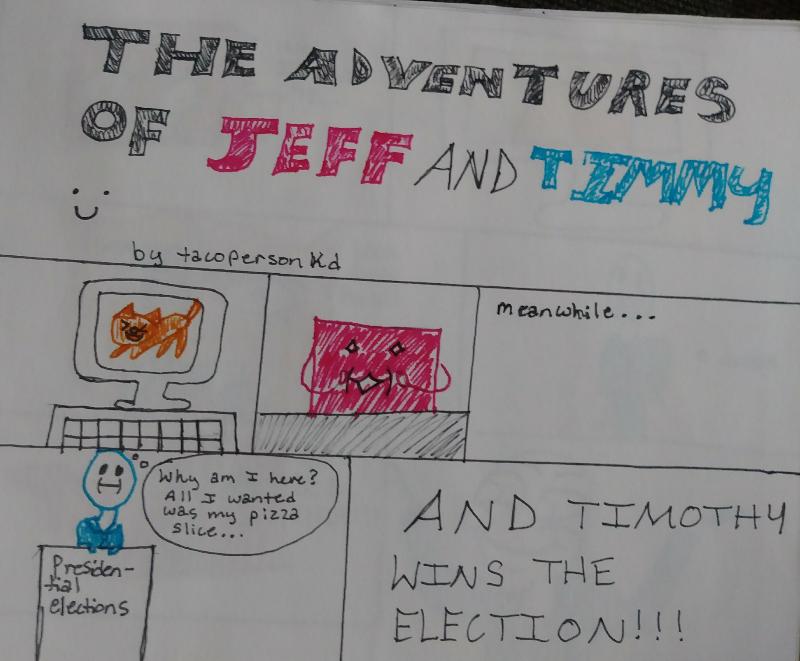 THE ADVENTURES
OF JEFF AND TIMMY
by tacopersonkd
meanwhile...
Why am I here?
All I wanted
was my pizza
slice...
Presiden-
tial
elections
AND TIMOTHY
WINS THE
ELECTION!!!